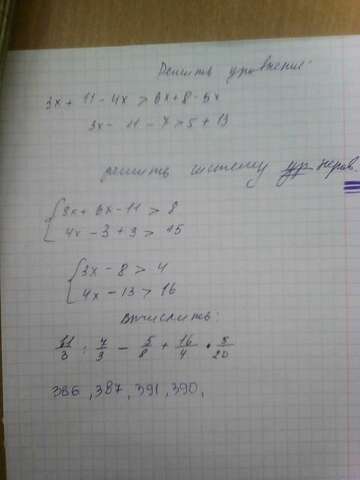 Решить уравнение:
3x + 11 - 4x > 6x + 8 - 5x
3x - 11 - 7 > 5 + 13
решить систему ур нерав.
3x + 6x - 11 > 8
4x - 3 + 9 > 15
3x - 8 > 4
4x - 13 > 16
Вычислить:
11/3 : 7/9 - 5/8 + 16/4 • 5/20
386, 387, 391, 390,